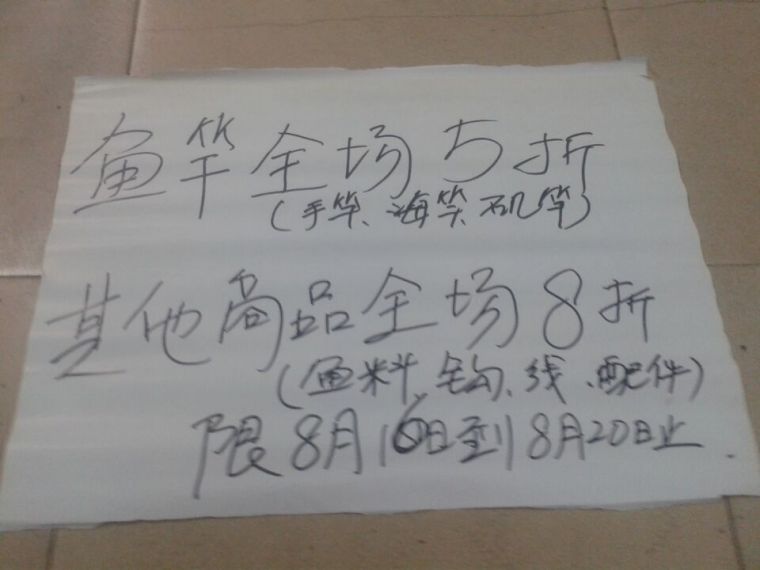 鱼竿全场5折
(手竿、海竿、矶竿)
其他商品全场8折
(鱼料、钩、线、配件)
限8月16日到8月20日止.